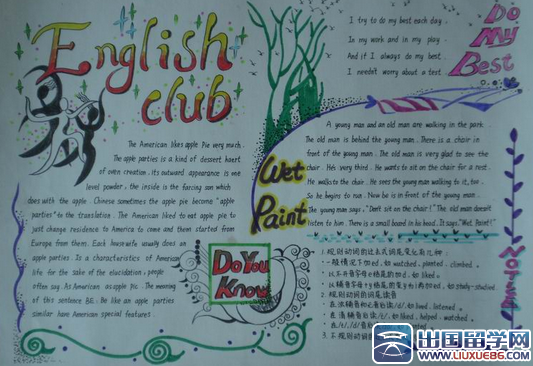 English
club
The American likes apple Pie very much.
The apple parties is a kind of dessert
of oven creation. its outward appearance is one
level powder, the inside is the farcing son which
does with the apple. Chinese sometimes the apple pie become "apple
parties" to the translation. The American Need to eat apple pie to
just change residence to America to come and them started from
Europe from them. Each housewife usually does an
apple parties. Is a characteristics of American
life for the sake of the elucidation, people
often say. As American as apple pie. The meaning
of this sentence BE. Be like an apple parties
similar have American special features.
Do You
Know
Wet
Paint
I try to do my best each day.
In my work and in my play.
And if I always do my best.
I needn't worry about a test.
Do
My
Best
A young man and an old man are walking in the park.
The old man is behind the young man. There is a chair in
front of the young man. The old man is very glad to see the
chair. He's very tired. He wants to sit on the chair for a rest.
He walks to the chair. He sees the young man walking to it, too.
So he begins to run. Now he is in front of the young man.
The young man says, "Don't sit on the chair!" The old man doesn't
listen to him. There is a small board in his hand. It says, "Wet Paint!"
1. 规则动词的过去式词尾变化有几种
一般情况下加ed, 如 watched, planted, climbed.
以不发音字母e结尾的加d, 如 liked.
以辅音字母+y结尾的变y为i再加ed, 如 study-studied
2. 规则动词的词尾读音
在浊辅音和元音后读/d/, 如 lived, listened.
在清辅音后读/t/, 如 liked, helped, watched.
在/t/,/d/音
3. 不规则动词的
出国留学网
www.liuxue86.com